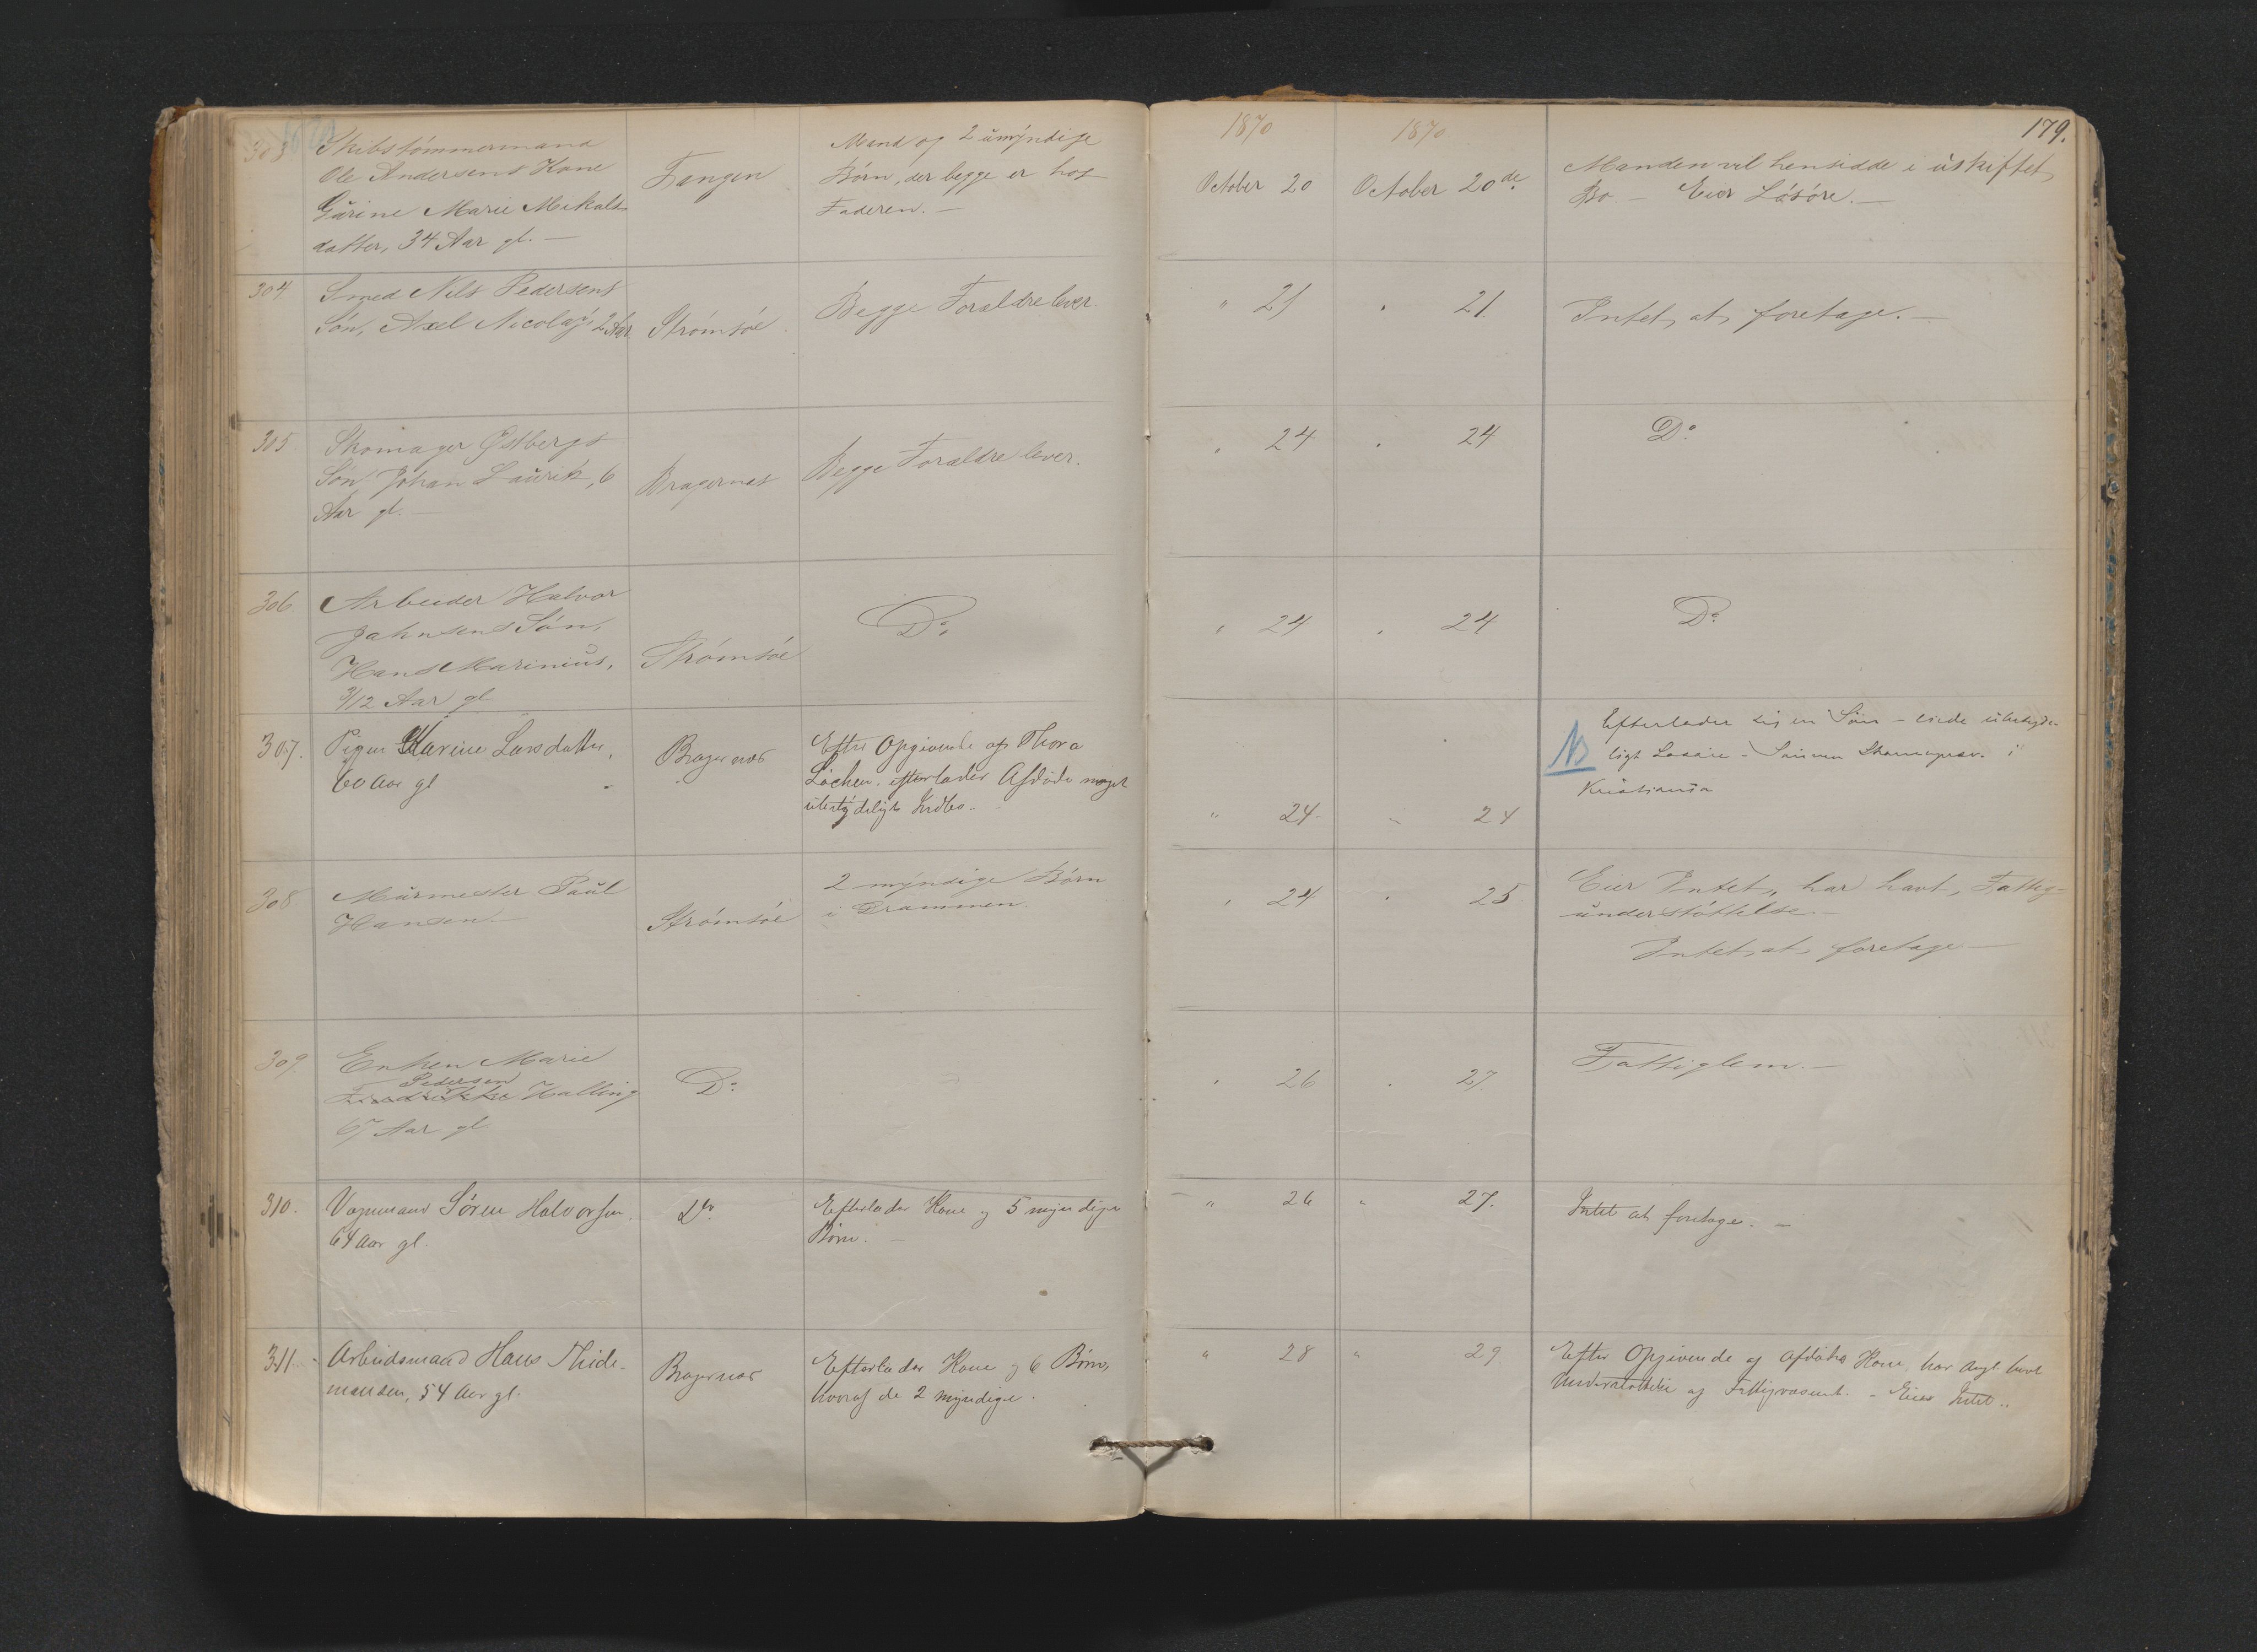 1870 1870 179.
303 Skibstømmermand
Ole Andersens Kone
Gurine Marie Mikals
datter, 34 Aar gl. —
Tangen
Mand og 2 umyndige
Børn, der begge er hos
Faderen. —
October 20 October 20de
Manden vil hensidde i uskiftet
Bo — Eier Løsøre. —
304 Smed Nils Pedersens
Søn, Axel Nicolaj, 2 Aar.
Strømsøe.
Begge Forældre lever
" 21 " 21.
Intet at foretage. —
305 Skomager Østbergs
Søn Johan Laurik, 6
Aar gl. —
Bragernæs
Begge Forældre lever.
" 24 " 24
Do
306 Arbeider Halvor
Jahnsens Søn,
Hans Marinius,
3/12 Aar gl
Strømsøe
Do
" 24 " 24
Do
307. Pigen Karine Larsdatter,
60 Aar gl
Bragernæs
Efter Opgivende af Thora
Løchen. efterlader Afdøde meget
ubetydeligt Indbo.
" 24 " 24
NB
Efterlader sig en Søn — eiede ubetyde-
ligt Løsøre — Sønnen i
Kristiania
308 Murmester Paul
Hansen. —
Strømsøe
2 myndige Børn
i Drammen.
" 24 " 25
Eier Intet, har havt Fattig-
understøttelse. —
Intet at foretage —
309 Enken Marie
Pedersen
Halling
67 Aar gl
Do
" 26 " 27.
Fattiglem. —
310. Vognmand Søren Halvorsen.
64 Aar gl.
Do
Efterlader Kone og 5 myndige
Børn. —
" 26 " 27.
Intet at foretage. —
311 Arbeidsmand Hans Thide-
mansen, 54 Aar gl.
Bragernæs
Efterlader Kone og 6 Børn,
hvoraf de 2 myndige.
" 28 " 29
Efter Opgivende af Afdødes Kone har havt
Understøttelse af Fattigvæsenet. — Eies Intet..